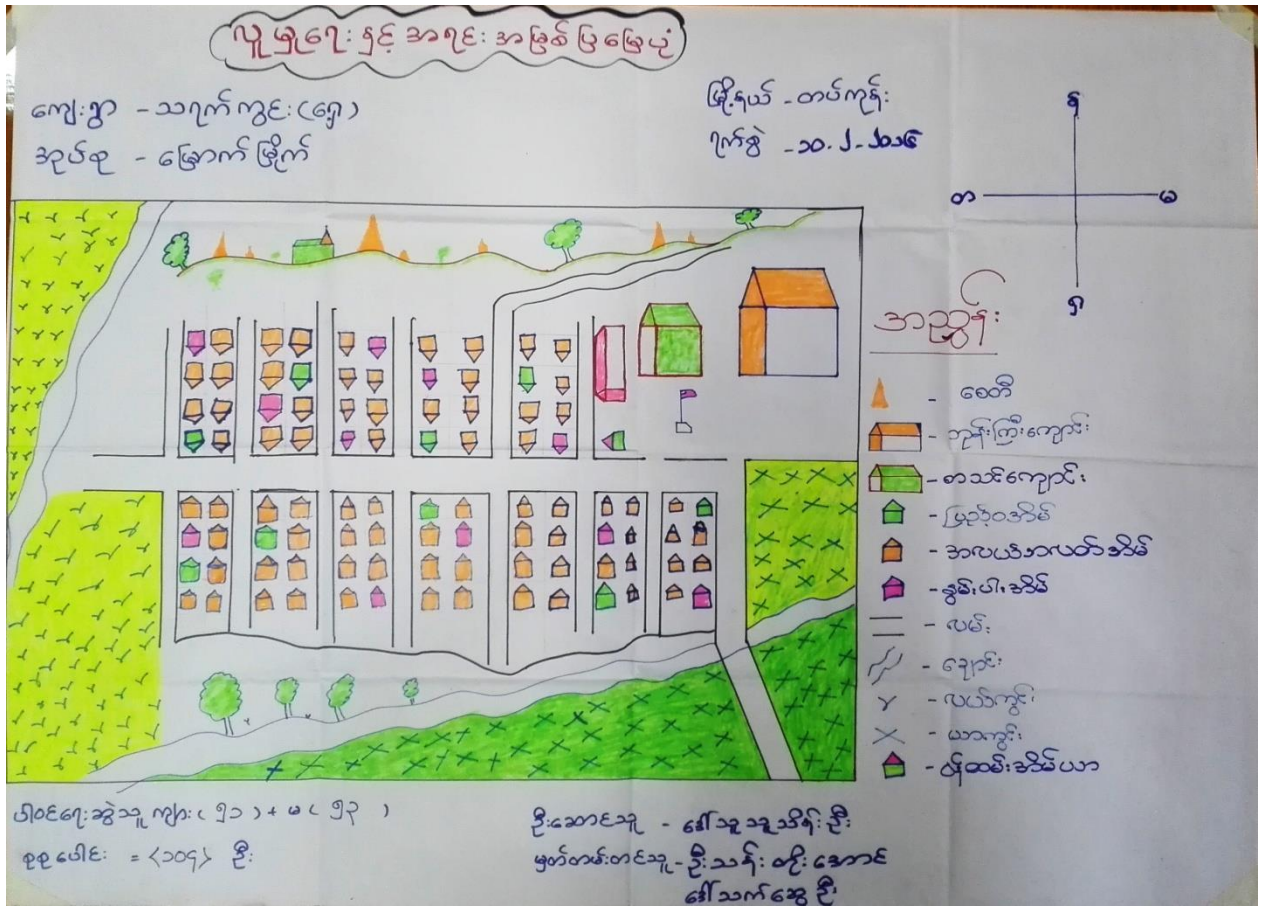 လူမှုရေး နှင့် အရင်းအမြစ်ပြမြေပုံ
ကျေးရွာ - သရက်ကွင်း(ရှေ့)
အုပ်စု - မြောက်မြိုက်
မြို့နယ် - တပ်ကုန်း
ရက်စွဲ - ၁၀-၂-၂၀၁၆
န
တ
မ
ရှ
အညွှန်း
- စေတီ
- ဘုန်းကြီးကျောင်း
- စာသင်ကျောင်း
- ပြည့်ဝအိမ်
- အလယ်အလတ်အိမ်
- နွမ်းပါးအိမ်
- လမ်း
- ချောင်း
- လယ်ကွင်း
- ယာကွင်း
- ဝန်ထမ်းအိမ်ယာ
ပါဝင်ရေးဆွဲသူ ကျား (၅၁) + မ (၅၃)
စုစုပေါင်း = <၁၀၄> ဦး
ဦးဆောင်သူ - ဒေါ်သူသူသိန်းဦး
မှတ်တမ်းတင်သူ - ဦးသန်းတိုးအောင်
ဒေါ်သက်ဆွေဦး